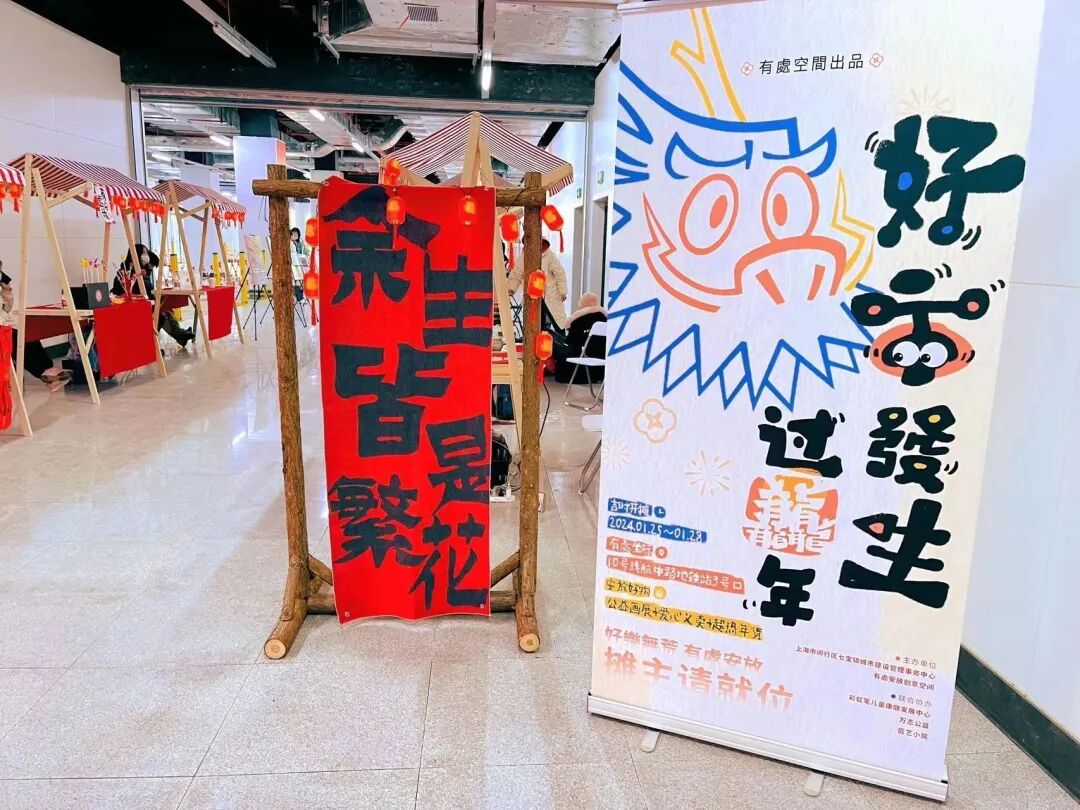 余生皆是繁花
有處空間出品
好事發生
过龘年
吉时开摊
2024.01.25~01.28
有处坐标
10号线航中路地铁站3号口
安放好物
公益画展+爱心义卖+超热年货
好樂無荒 有處安放
攤主请就位
主办单位
上海市闵行区七宝镇城市建设管理事务中心
有處安放创意空间
联合协办
彩虹笔儿童康健发展中心
万志公益
匠艺小筑